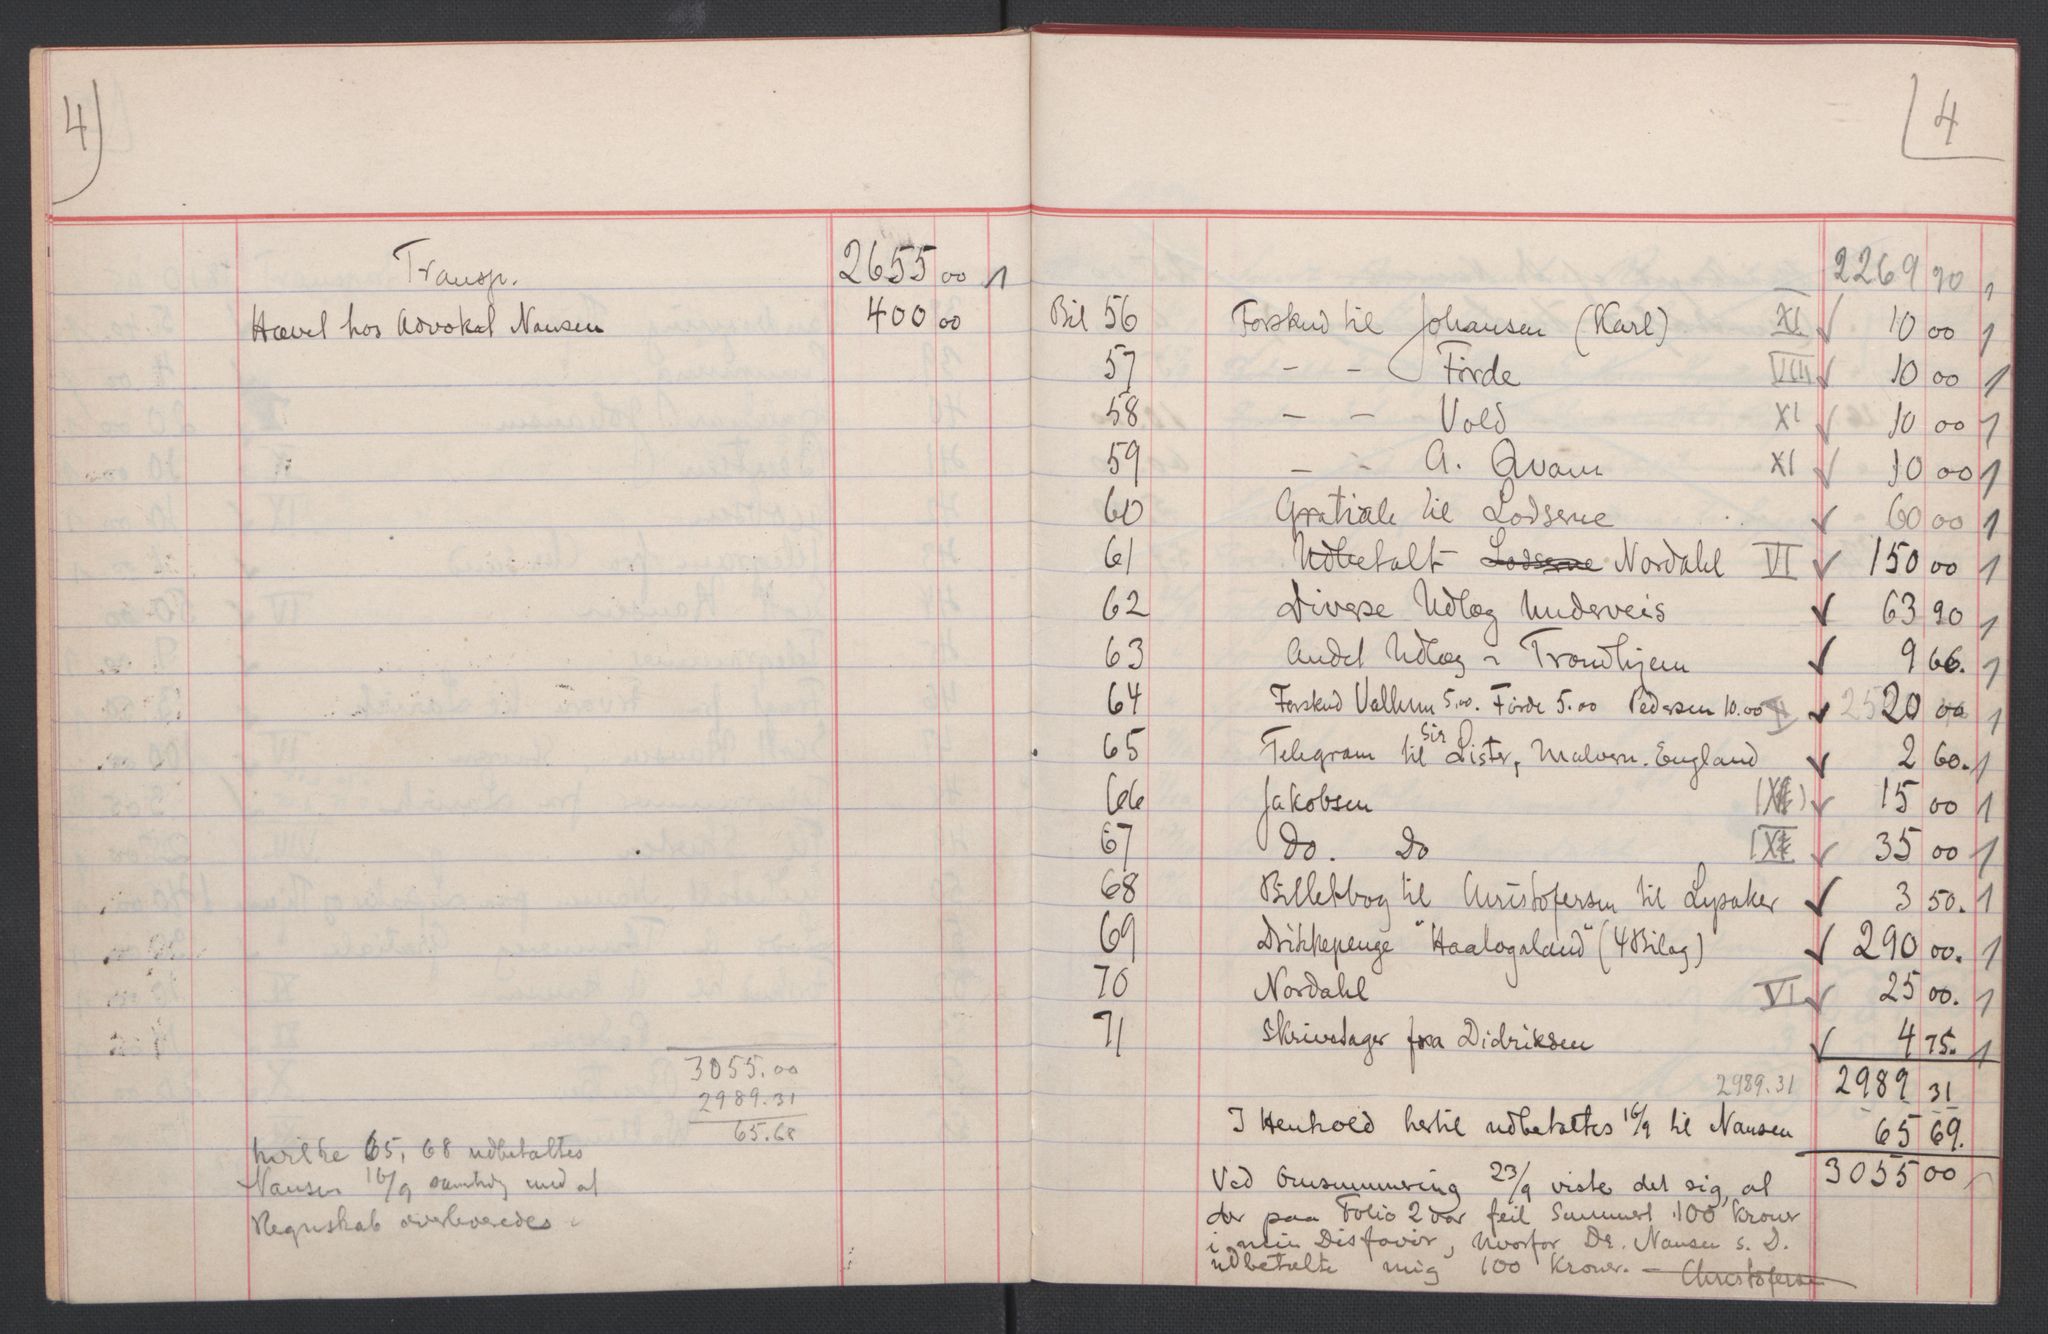 4
Transp. 2655 00 1
Hævet hos Advokat Nansen 400 00
3055.00
2989.31
65.68
hvilke 65,68 udbetaltes
Nansen 16/9 samtidig med at
Regnskab overleveredes.
4
2269 90 1
Bil 56 Forskud til Johansen (Karl) XI ✓ 10 00 1
57 – – Förde VIII ✓ 10 00 1
58 – – Vold XI ✓ 10 00 1
59 – – A. Qvam XI ✓ 10 00 1
60 Gratiale til Lodserne ✓ 60 00 1
61 Udbetalt Lodserne Nordahl VI ✓ 150 00 1
62 Diverse Udlæg Underveis ✓ 63 90 1
63 Andet Udlæg – Trondhjem ✓ 9 66. 1
64 Forskud Vallum 5.00. Förde 5.00 Pedersen 10.00 ✓ 20 00 1
65 Telegram til Sir Lister, Malvern. England ✓ 2 60. 1
66 Jakobsen ✓ 15 00 1
67 Do. Do ✓ 35 00 1
68 Billetbog til Christofersen til Lysaker ✓ 3 50. 1
69 Drikkepenge "Haalogaland" (4 Bilag) ✓ 290 00. 1
70 Nordahl VI ✓ 25 00. 1
71 Skrivesager fra Didriksen ✓ 4 75. 1
2989.31 2989 31
I Henhold hertil udbetaltes 16/9 til Nansen 65 69.
3055 00
Ved Omsummering 23/9 viste det sig, at
der paa Folio 2 var feil Summert 100 Kroner
i min Disfavør, hvorfor Dr. Nansen s. D.
udbetalte mig 100 Kroner. – Christofersen